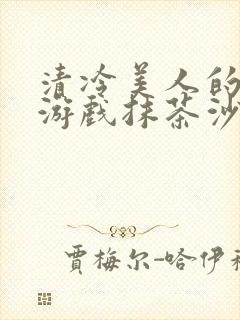 清冷美人的
游戏抹茶沙
贾梅尔-哈伊利